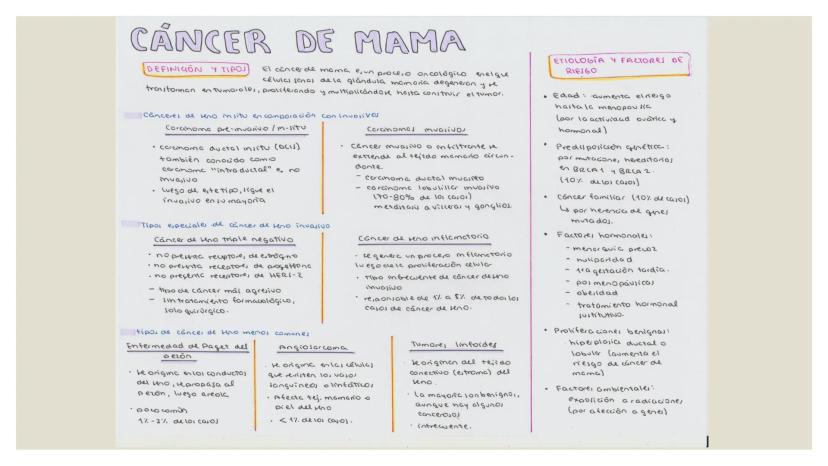 CÁNCER DE MAMA
DEFINICIÓN Y TIPOS
El cáncer de mama es un proceso oncológico en el que
células sanas de la glándula mamaria degeneran y se
transforman en tumorales, proliferando y multiplicándose hasta constituir el tumor.
Cánceres de seno in situ en comparación con invasivos
Carcinoma pre-invasivo / in-situ
• carcinoma ductal in situ (DCIS)
también conocido como
carcinoma "intraductal" e no
invasivo
• luego de este tipo, sigue el
invasivo en su mayoría
Carcinomas invasivos
• Cáncer invasivo o infiltrante se
extiende al tejido mamario circun-
dante.
- carcinoma ductal invasivo
- carcinoma lobulillar invasivo
(70-80% de los casos)
metástasis a vísceras y ganglios
Tipos especiales de cáncer de seno invasivo
Cáncer de seno triple negativo
• no presenta receptores de estrógeno
• no presenta receptores de progesterona
• no presenta receptores de HER1-2
- tipo de cáncer más agresivo
- sin tratamiento farmacológico,
solo quirúrgico.
Cáncer de seno inflamatorio
• se genera un proceso inflamatorio
luego de la proliferación celular
• tipo infrecuente de cáncer de seno
invasivo
• responsable de 1% a 5% de todos los
casos de cáncer de seno.
Tipos de cáncer de seno menos comunes
Enfermedad de Paget del
pezón
• se origina en los conductos
del seno, se propaga al
pezón, luego areola
• poco común
1%-3% de los casos
Angiosarcoma
• se origina en las células
que revisten los vasos
sanguíneos o linfáticos
• Afecta tej. mamario o
piel del seno
• < 1% de los casos.
Tumores
• se originan del tejido
conectivo (estroma) del
seno.
• La mayoría son benignos,
aunque hay algunos
cancerosos
• infrecuente.
ETIOLOGÍA Y FACTORES DE
RIESGO
• Edad: aumenta el riesgo
hasta la menopausia
(por la actividad ovárica y
hormonal)
• Predisposición genética:
por mutaciones hereditarias
en BRCA1 y BRCA2.
(10% de los casos)
• Cáncer familiar (10% de casos)
↳ por herencia de genes
mutados.
• Factores hormonales:
- menarquia precoz
- nuliparidad
- 1ra gestación tardía.
- posmenopáusicas
- obesidad
- tratamiento hormonal
sustitutivo.
• Proliferaciones benignas:
hiperplasia ductal o
lobular (aumenta el
riesgo de cáncer de
mama)
• Factores ambientales:
exposición a radiaciones
(por afección a genes)